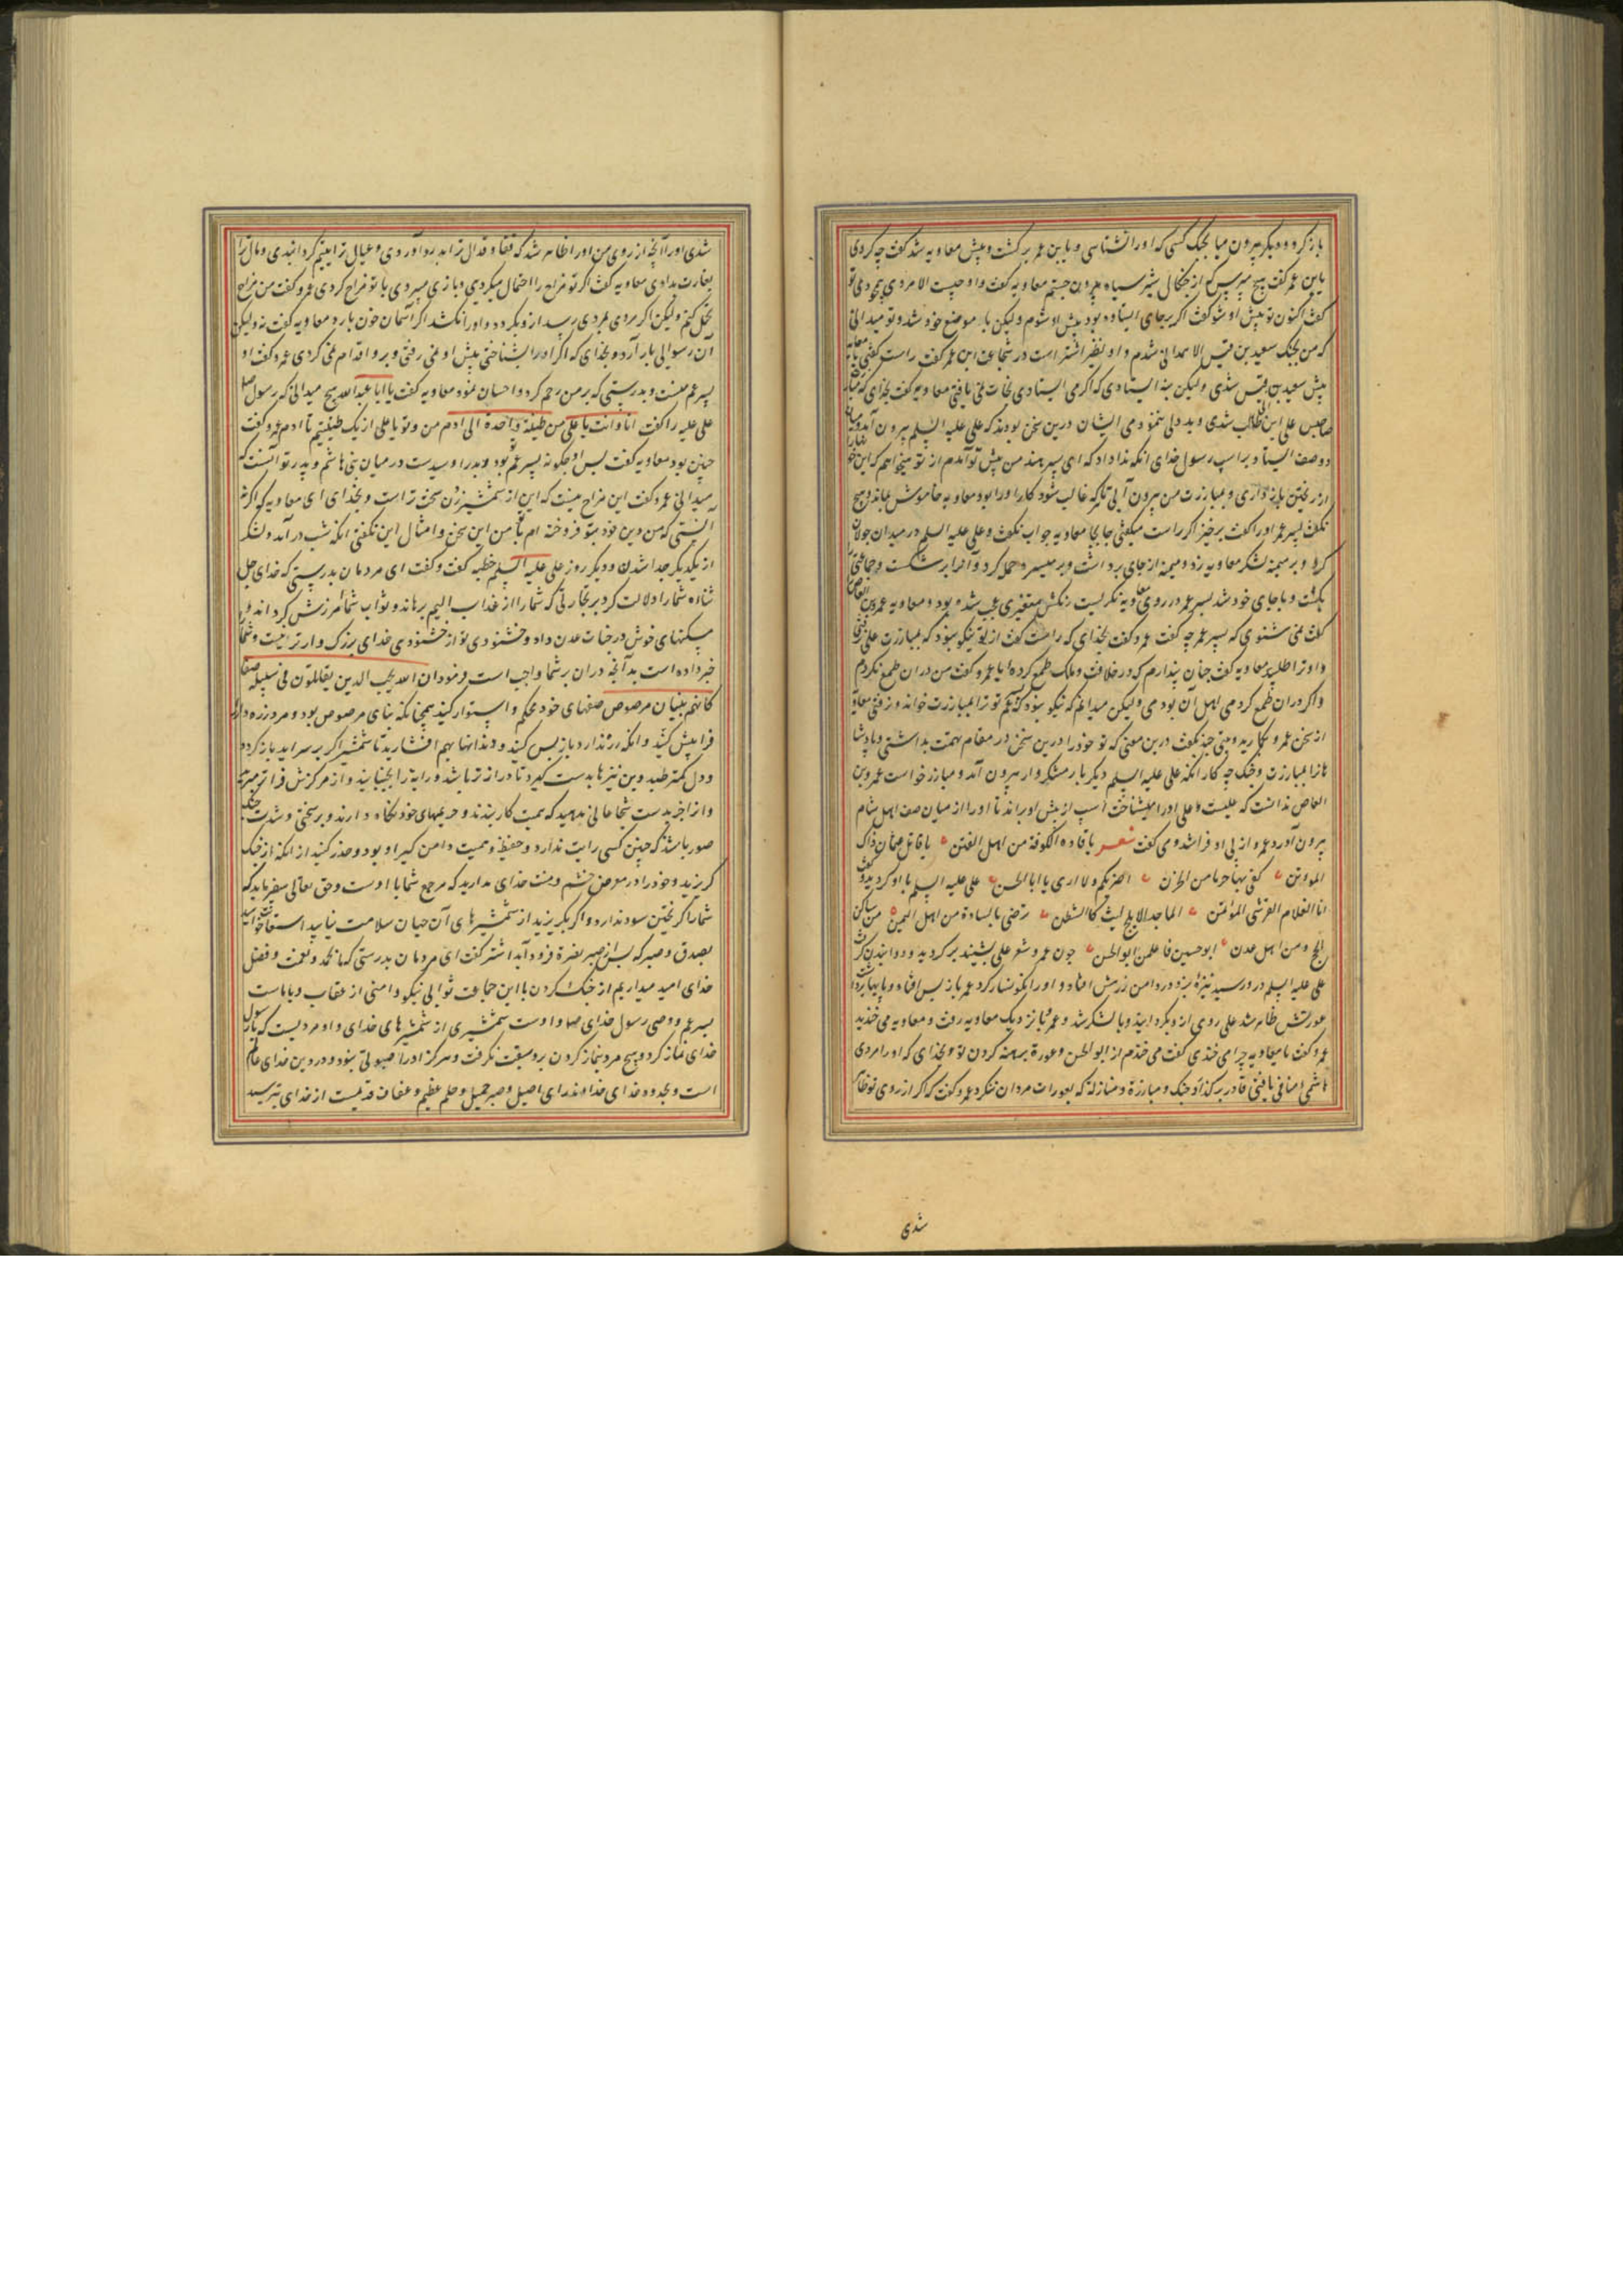 باز کرد و دیگر بیرون میا بجنگ کسی که او را نشناسی و یا بن عم برگشت و پیش معاویه شد گفت چه کردی
یا بن عم گفت هیچ مپرس که از چنگال شیر سیاه بیرون جستم معاویه گفت و او چیست الا مردی همچو تو
گفت اکنون تو پیش او شو گفت اگر بر جای ایستاده بود پیش او شوم ولیکن باز موضع خود شد و تو میدانی
که من بجنگ سعید بن قیس الهمدانی شدم و او نظیر اشتر است در شجاعت ابن عم گفت راست گفتی
پیش سعید بن قیس شدی ولیکن نه ایستادی که اگر می ایستادی نجات نمی یافتی معاویه گفت بخدای که
صاحبش علی ابن ابی طالب شدی و بد دلی ننمودمی ایشان درین سخن بودند که علی علیه السلم بیرون آمد
دو صف ایستاد بر اسپ رسول خدای آنکه ندا داد که ای پسر هند من پیش تو آمدم از تو میخواهم که این
از ریختن باز داری و بمبارزت من بیرون آیی تا هر که غالب شود کار او را بود معاویه خاموش بماند و هیچ
نگفت پسر عم او را گفت برخیز اگر راست میگفتی جا بجا معاویه جواب نگفت و علی علیه السلم در میدان جولان
کرد و بر میمنه لشکر معاویه زد و میمنه از جای برداشت و بر میسره حمل کرد و آنرا بر شکست و جماعتی
بکشت و با جای خود شد پسر عم در روی معاویه نگریست رنگش متغیری عجب شده بود و معاویه عمرو بن العاص
گفت نمی شنوی که پسر عم چه گفت عمرو گفت بخدای که راست گفت از تو نیکو نبود که بمبارزت علی
و او ترا طلبید معاویه گفت چنان پندارم که در خلافت و ملک طمع کرده ای عمرو گفت من در آن طمع نکردم
و اگر در آن طمع کردمی اهل آن بودمی ولیکن میدانم که نیکو نبود که پسر عم تو ترا بمبارزت خواند و نرفتی معاویه
از سخن عمرو بکاریه و بیتی چند بگفت درین معنی که تو خود را درین سخن در مقام تهمت بداشتی و پادشا
هانرا بمبارزت و جنگ چه کار آنکه علی علیه السلم دیگر بار متنکروار بیرون آمد و مبارز خواست عمرو بن
العاص ندانست که علیست و علی او را میشناخت اسپ از پیش او براند تا او را از میان صف اهل شام
بیرون آورد عمرو از پی او فرا شد و می گفت شعر یا قادة الکوفة من اهل الفتن یا قاتل عثمان ذاک
الموتمن کفی بهذا حزنا من الحزن اضربکم و لا اری یا ابا الحسن علی علیه السلم با او گردید و گفت
انا الغلام القرشی المؤتمن الماجد الابلج لیث کالشطن رضی بالسادة من اهل الیمن من ساکن
نجد و من اهل عدن ابو حسین فاعلمن ابو الحسن چون عمرو شعر علی بشنید برگردید و دوانیدن گرفت
علی علیه السلم در رسید نیزه بزد در دامن زرهش افتاد و او را نگونسار کرد عمرو باز پس افتاد و پایها برداشت
عورتش ظاهر شد علی روی ازو بگردانید و با لشکر شد و عمرو با نزدیک معاویه رفت و معاویه می خندید
عمرو گفت یا معاویه چرا می خندی گفت می خندم از ابو الحسن و عورة برهنه کردن تو و بخدای که او را مردی
هاشمی منافی یافتی قادر بر کذاو جنگ و مبارزة و منازلة که بعورات مردان ننگرد عمرو گفت که اگر از روی تو ظاهر
شدی
شدی او را آنچه از روی من او را ظاهر شد که قفا و قذال ترا بدرد آوردی و عیال ترا یتیم گردانیدی و مال ترا
بغارت بدادی معاویه گفت اگر تو مزاح را احتمال میکردی و بازی میبردی با تو مزاح کردی عمرو گفت من مزاح
تحمل کنم ولیکن اگر مردی بمردی رسد ازو بگردد و او را نکشد اگر آسمان خون بارد معاویه گفت نه ولیکن
آن رسوایی بار آرد و بخدای که اگر او را بشناختی پیش او نمی رفتی و برو اقدام نمی کردی عمرو گفت او
پسر عم منست و بدرستی که بر من رحم کرد و احسان نمود معاویه گفت یا ابا عبد الله هیچ میدانی که رسول صلع
علی علیه را گفت انا و انت یا علی من طینة واحدة الی ادم من و تو یا علی از یک طینتیم تا ادم عمرو گفت
چنین بود معاویه گفت پس او چگونه پسر عم تو بود و پدر او سیدست در میان بنی هاشم و پدر تو آنست که
میدانی عمرو گفت این مزاح نیست که این از شمشیر زدن سخت تر است و بخدای ای معاویه که اگر نه
انستی که من دین خود بتو فروخته ام با من این سخن و امثال این نگفتی آنکه شب در آمد و لشکر
از یکدیگر جدا شدند و دیگر روز علی علیه السلم خطبه گفت و گفت ای مردمان بدرستی که خدای جل
ثناؤه شما را دلالت کرد بر تجارتی که شما را از عذاب الیم برهاند و ثواب شما آمرزش گرداند و
مسکنهای خوش در جنات عدن داد و خشنودی تو از خشنودی خدای بزرگ وار تر نیست و شما
خبر داده است بدآنچه در آن بر شما واجب است و فرمود ان الله یحب الذین یقاتلون فی سبیله صفا
کانهم بنیان مرصوص صفهای خود محکم و استوار کنید همچنانکه بنای مرصوص بود و مرد زره دار
فرا پیش کنید و آنکه زره ندارد باز پس کنید و دندانها بهم افشارید تا شمشیر اگر بر سر آید باز گردد
و دل کمتر طپد و بن نیزها بدست گیرد تا دراز تر باشد و رایة را بجنبانید و از مرکزش فراتر مبرید
و از آخر بدست شجاعانی بدهید که حمیت کار بندند و حریمهای خود نگاه دارند و بر سختی و شدت جنگ
صبور باشند که چنین کسی رایت ندارد و حفیظ و حمیت دامن گیر او بود و حذر کنید از آنکه از جنگ
گریزید و خود را در معرض خشم و مقت خدای مدارید که مرجع شما با اوست و حق تعالی میفرماید که
شما را گریختن سود ندارد و اگر بگریزید از شمشیرهای آن جهان سلامت نیابید استعانت خواهید
بصدق و صبر که پس از صبر نصرة فرود آید اشتر گفت ای مردمان بدرستی که ما بحمد و نعمت و فضل
خدای امید میداریم از جنگ کردن با این جماعت ثوابی نیکو و امنی از عقاب و با ماست
پسر عم و وصی رسول خدای صلع و اوست شمشیری از شمشیرهای خدای و او مردیست که با رسول
خدای نماز کرد و هیچ مرد بنماز کردن برو سبقت نگرفت و هرگز او را صبوتی نبود و در دین خدای عالم
است و بحدود خدای خداوند رای اصیل و صبر جمیل و حلم عظیم و عفاف قدیمست از خدای بترسید